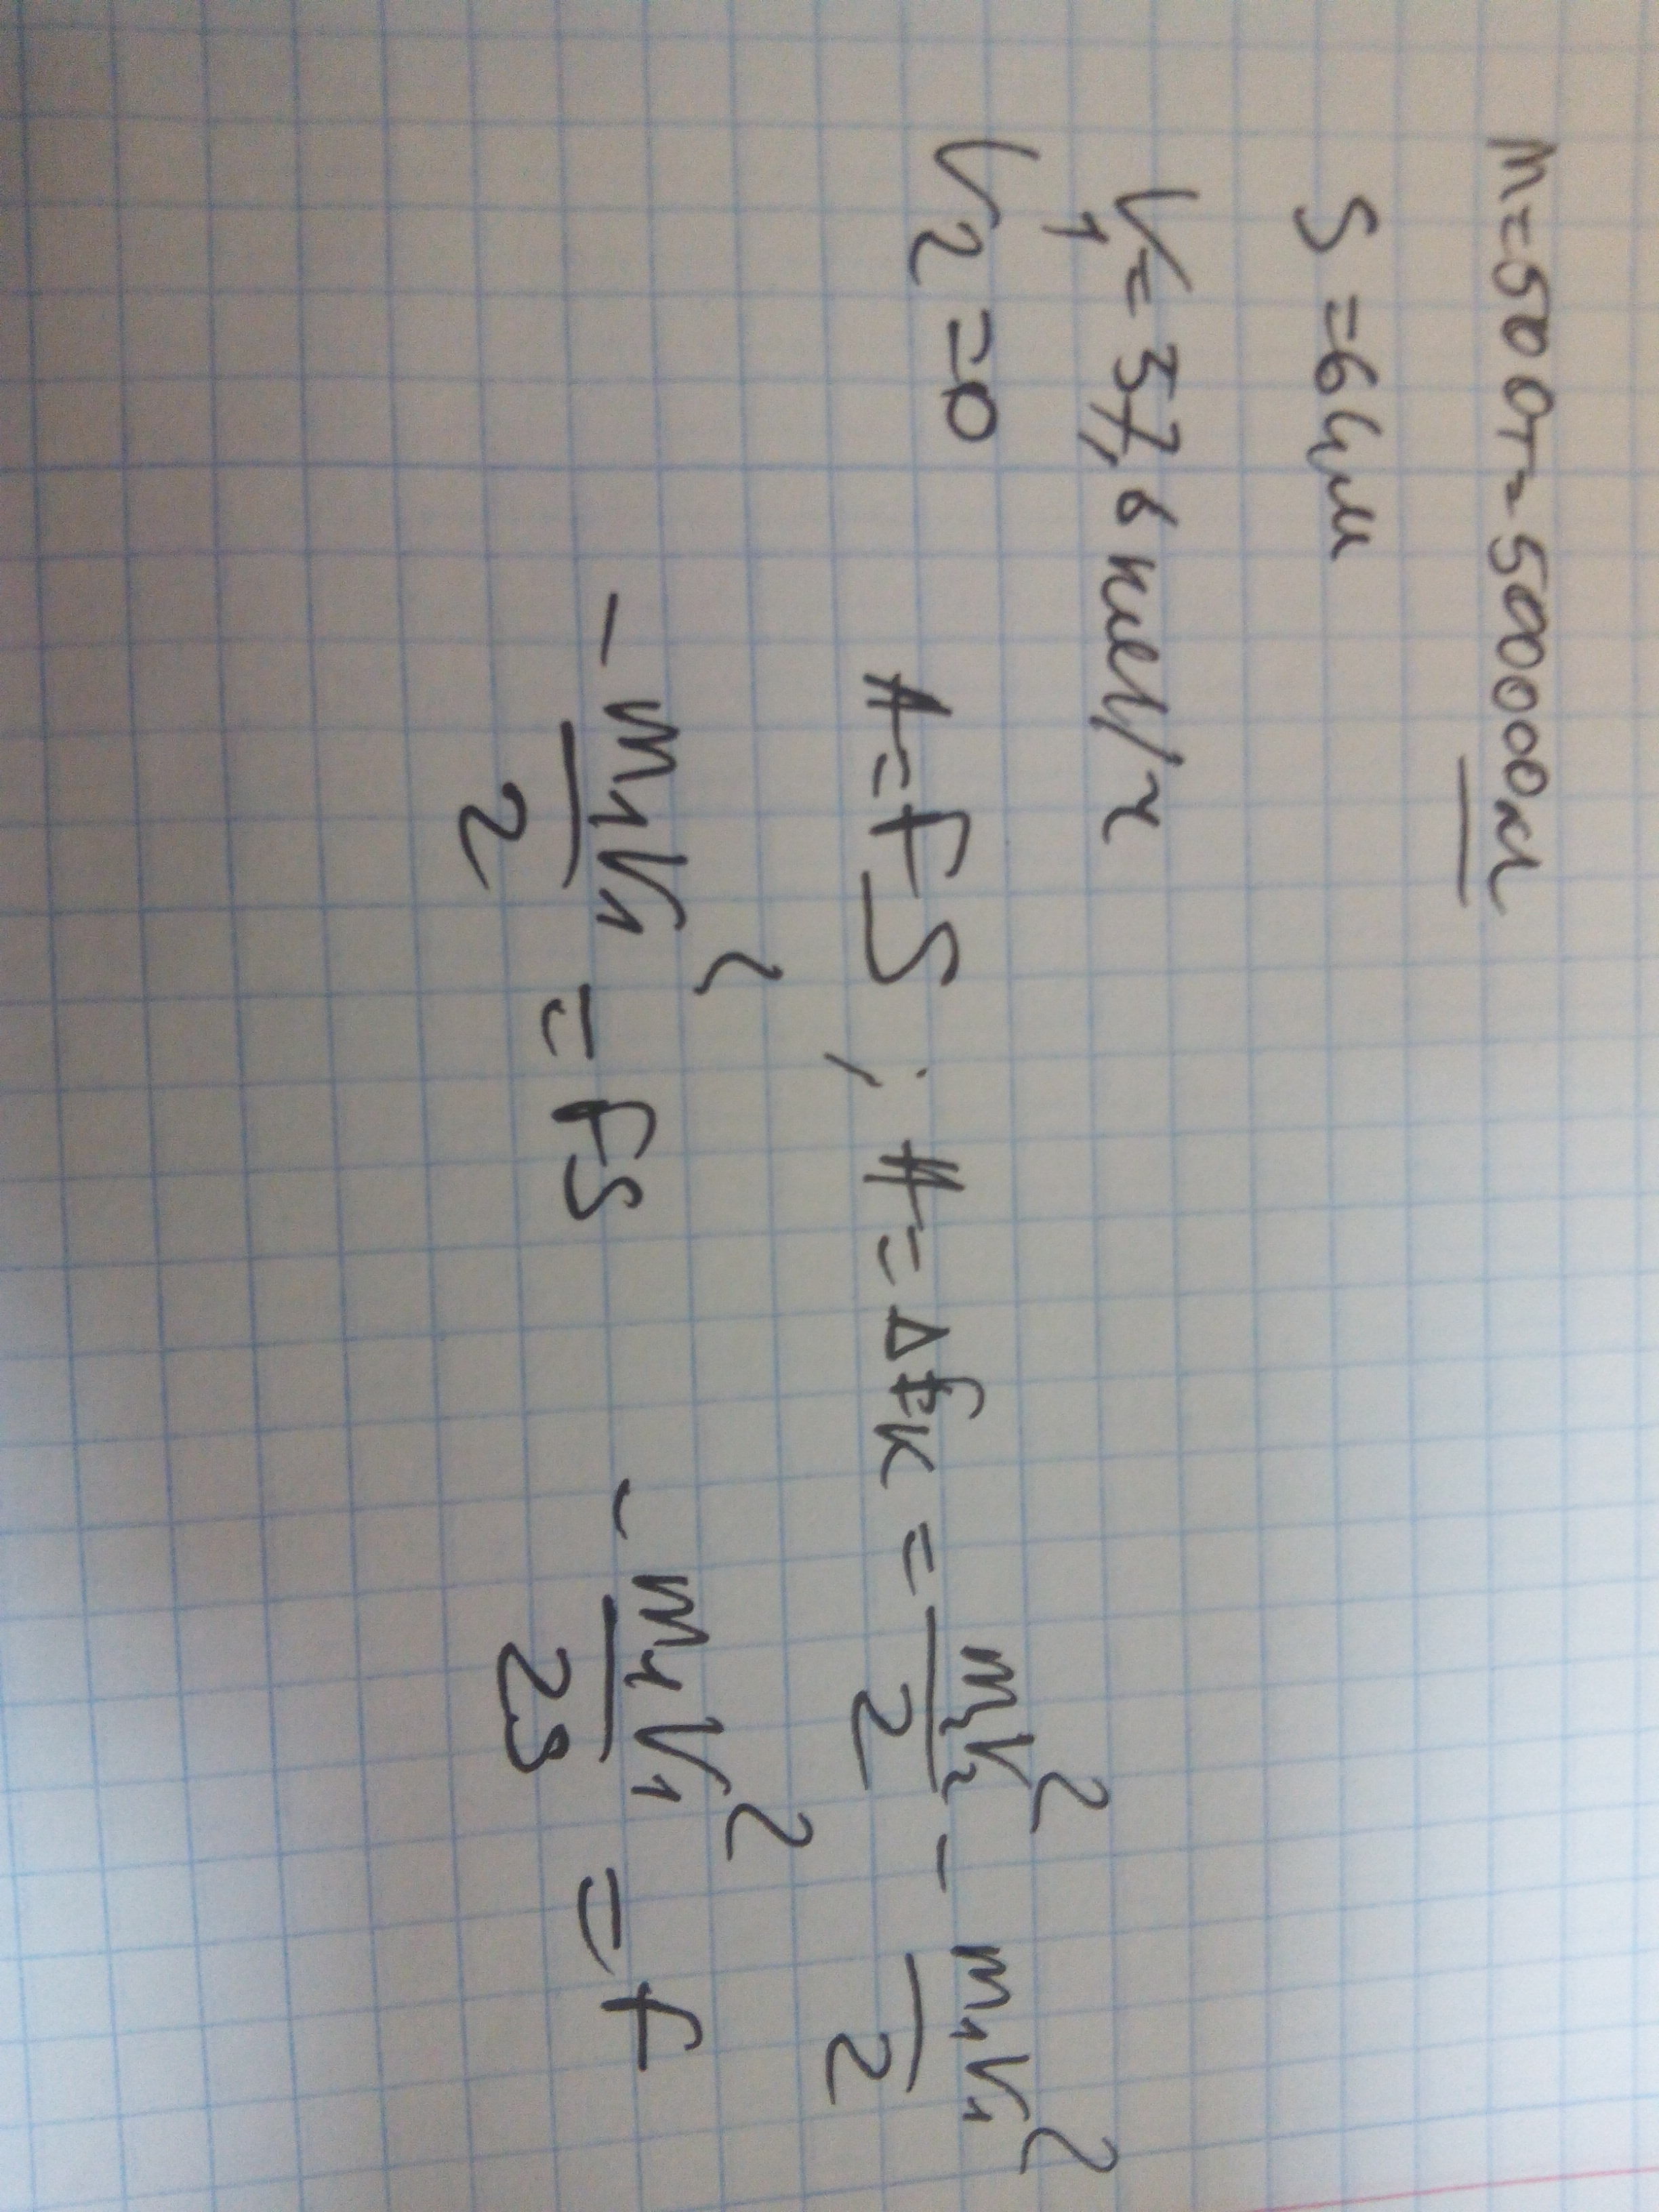 m=500т=500000кг
S=64м
V₁=37,6 км/ч
V₂=0
A=FS ; A=ΔEк = m₂V₂²/2 - m₁V₁²/2
- m₁V₁²/2 = FS - m₁V₁²/2S = F